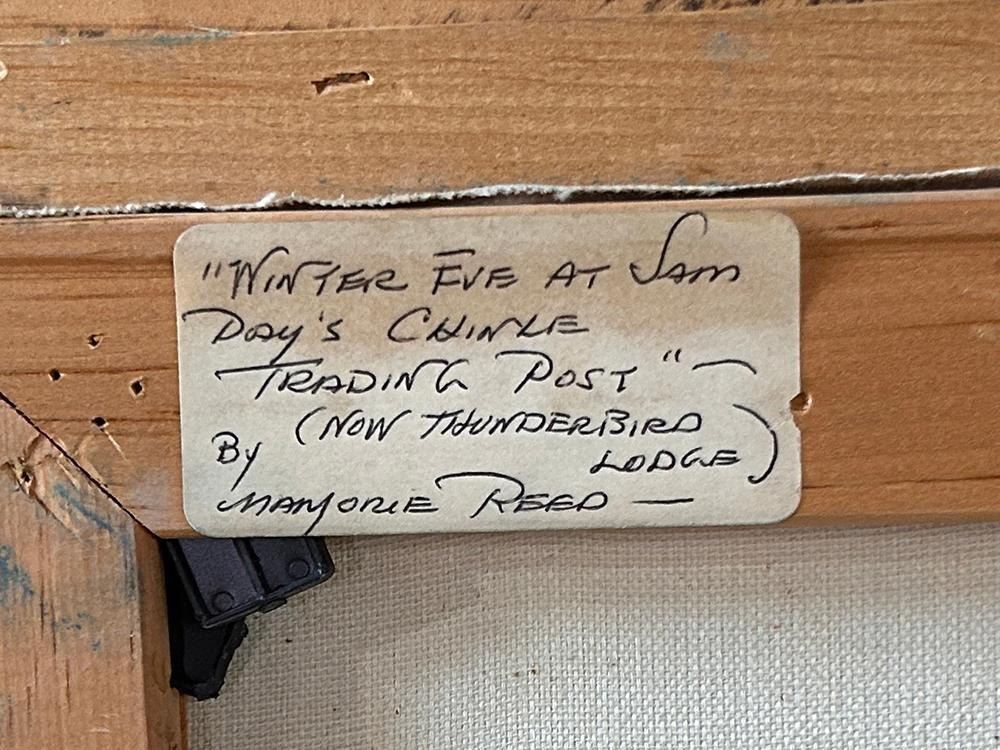 "WINTER EVE AT SAM
DAY'S CHINLE
TRADING POST" —
(NOW THUNDERBIRD
By LODGE)
MARJORIE REED —